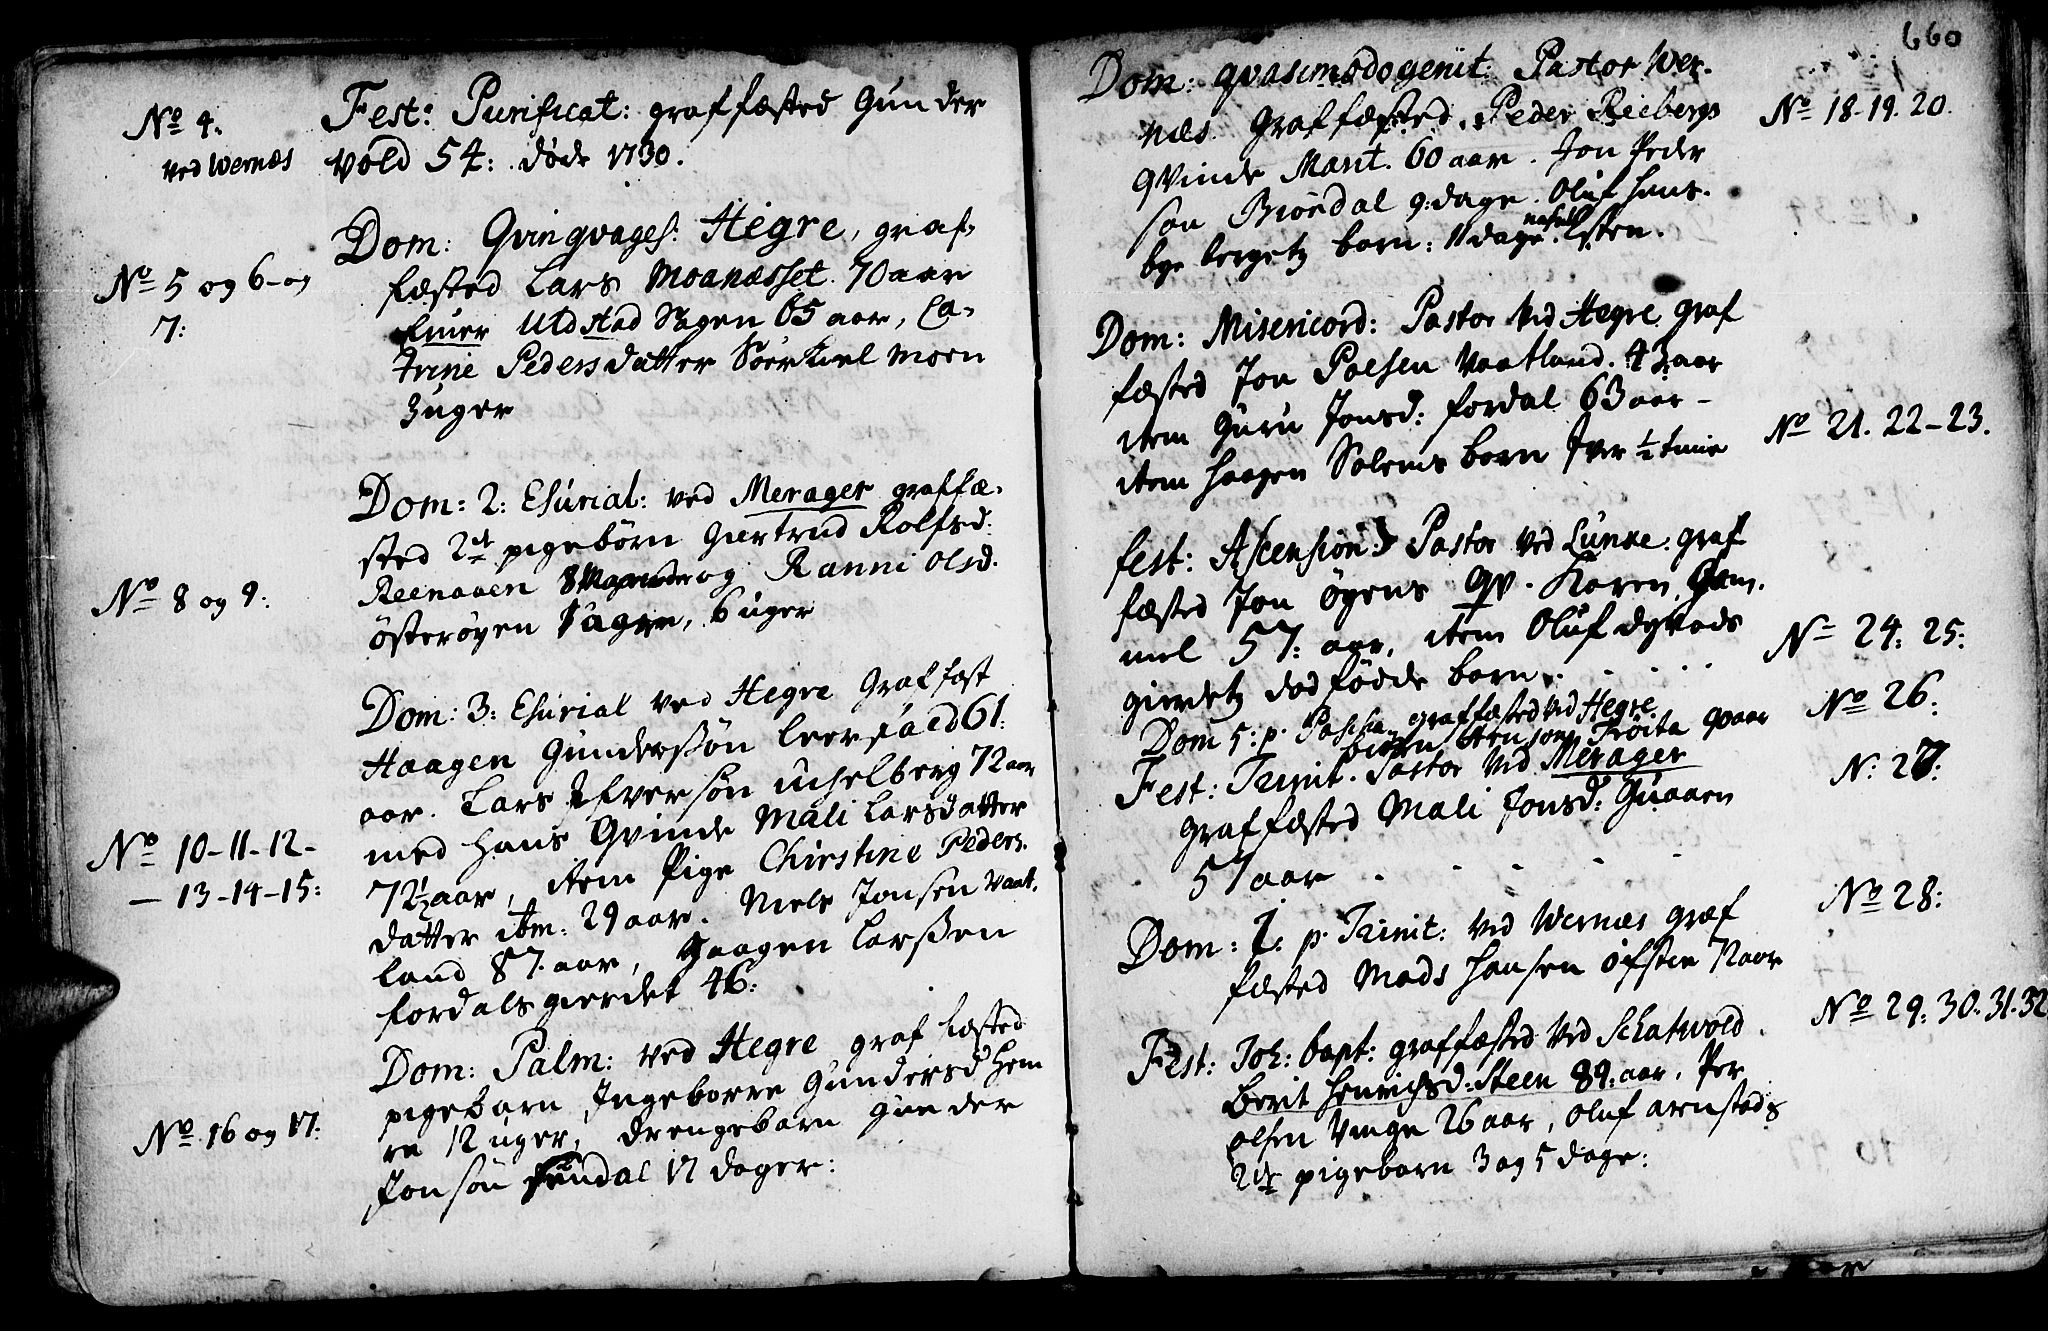 No 4.
ved Wernæs
Fest: Purificat: graffæsted Gunder
vold 54: døde 1730.
No 5 og 6-og
7:
Dom: Qvinqvages: Hegre, graf-
fæsted Lars Moanæsset 70 aar
Einer Uldstad 65 aar, Ca-
trine Pedersdatter moen
3 uger
No 8 og 9:
Dom: 2: Esurial: ved Merager graffæ-
sted 2de pigebörn Giertrud Rolfsd:
Reenaaen 8 og Ranni Olsd.
österøyen 6 uger
No 10-11-12-
- 13-14-15:
Dom: 3: Esurial ved Hegre Graffæst
Haagen Gunderssøn leerfald 61:
aar. Lars Ifversøn uchelberg 72 aar
med hans Qvinde Mali Larsdatter
72½ aar, item Pige Chirstine Peders-
datter ibm: 29 aar. Niels Jonsen vaat-
land 87. aar, Haagen Larssen
fordalsgierdet 46:
No 16 og 17:
Dom: Palm: ved Hegre graf fæsted
pigebarn Ingeborre Gundersd hem
re 12 uger, drengebarn Gunder
Jonsøn 17 dager:
660
Dom: qvasimodogenit: Pastor Wer-
næs. Graffæsted. Peder Reebergs
qvinde Marit. 60 aar. Jon Peder
søn Biördal 9. dage. Oluf Hans-
bye bergetz barn: 11 dage. Isten.
No 18-19. 20.
Dom: Misericord: Pastor Ved Hegre graf
fæsted Jon Poelsen Vaatland. 43 aar
item Guru Jonsd: fordal 63 aar-
item haagen Solems barn Iver ½ time
No 21. 22-23.
fest: Ascension: Pastor ved Lunke. graf
fæsted Jon öyens qv. Karen, Gam-
mel 57: aar, item Oluf dyvads
gierdetz dødfödde barn.
No 24: 25:
Dom 5: p. Pascha graffæsted ved Hegre
90 aar
No 26:
Fest: Trinit. Pastor Ved Merager
graffæsted Mali Jonsd: Guaaen
57 aar
N: 27:
Dom: 1: p. Trinit: Ved Wernæs græf
fæsted Mads Hansen öfstie 72 aar
No 28:
Fest: Joh: bapt: graffæsted Ved Schatwold
Berit Henrichsd: Steen 89: aar, Per
olsen Vinge 26 aar, Oluf arnstads
2de pigebarn 3 og 5 dage:
No 29. 30. 31. 32